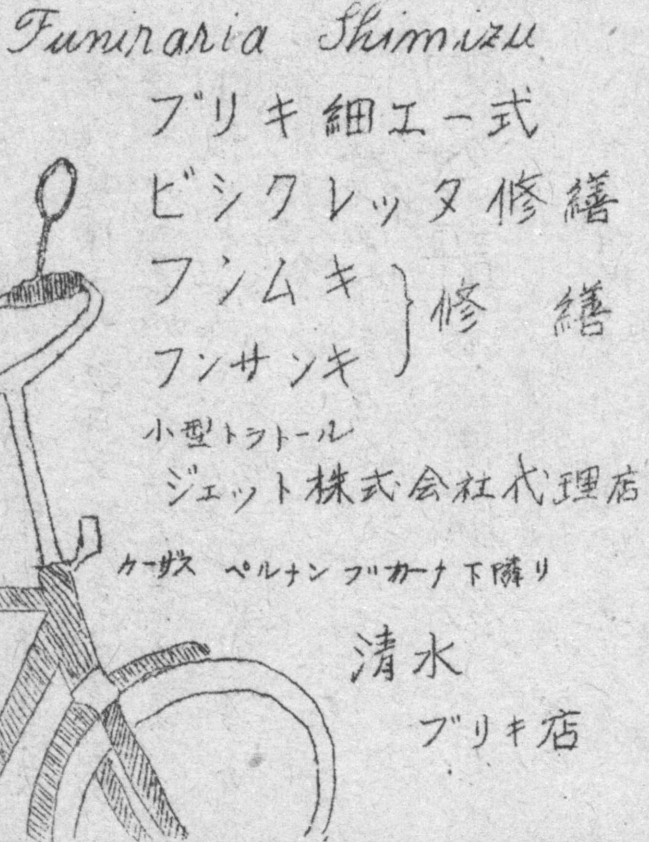 Funiraria Shimizu
ブリキ細工一式
ビシクレッタ修繕
フンムキ
フンサンキ
修 繕
小型トラトール
ジェット株式会社代理店
カーザス ペルナンブカーナ下隣り
清水
ブリキ店